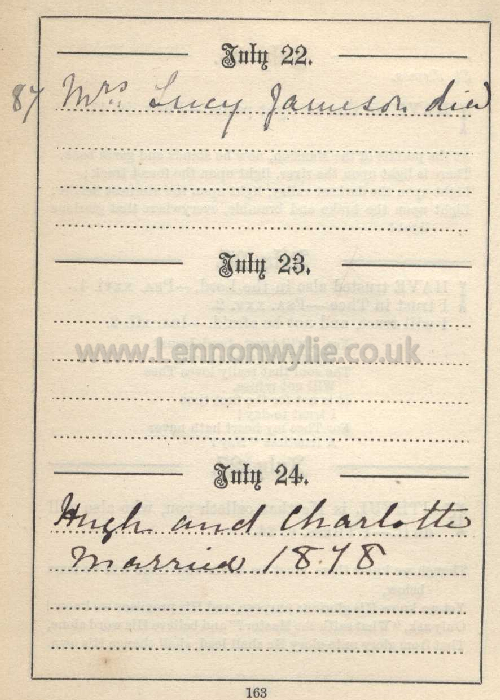 July 22.
87 Mrs. Lucy Jameson died
July 23.
www.Lennonwylie.co.uk
July 24.
Hugh and Charlotte
Married 1878
163